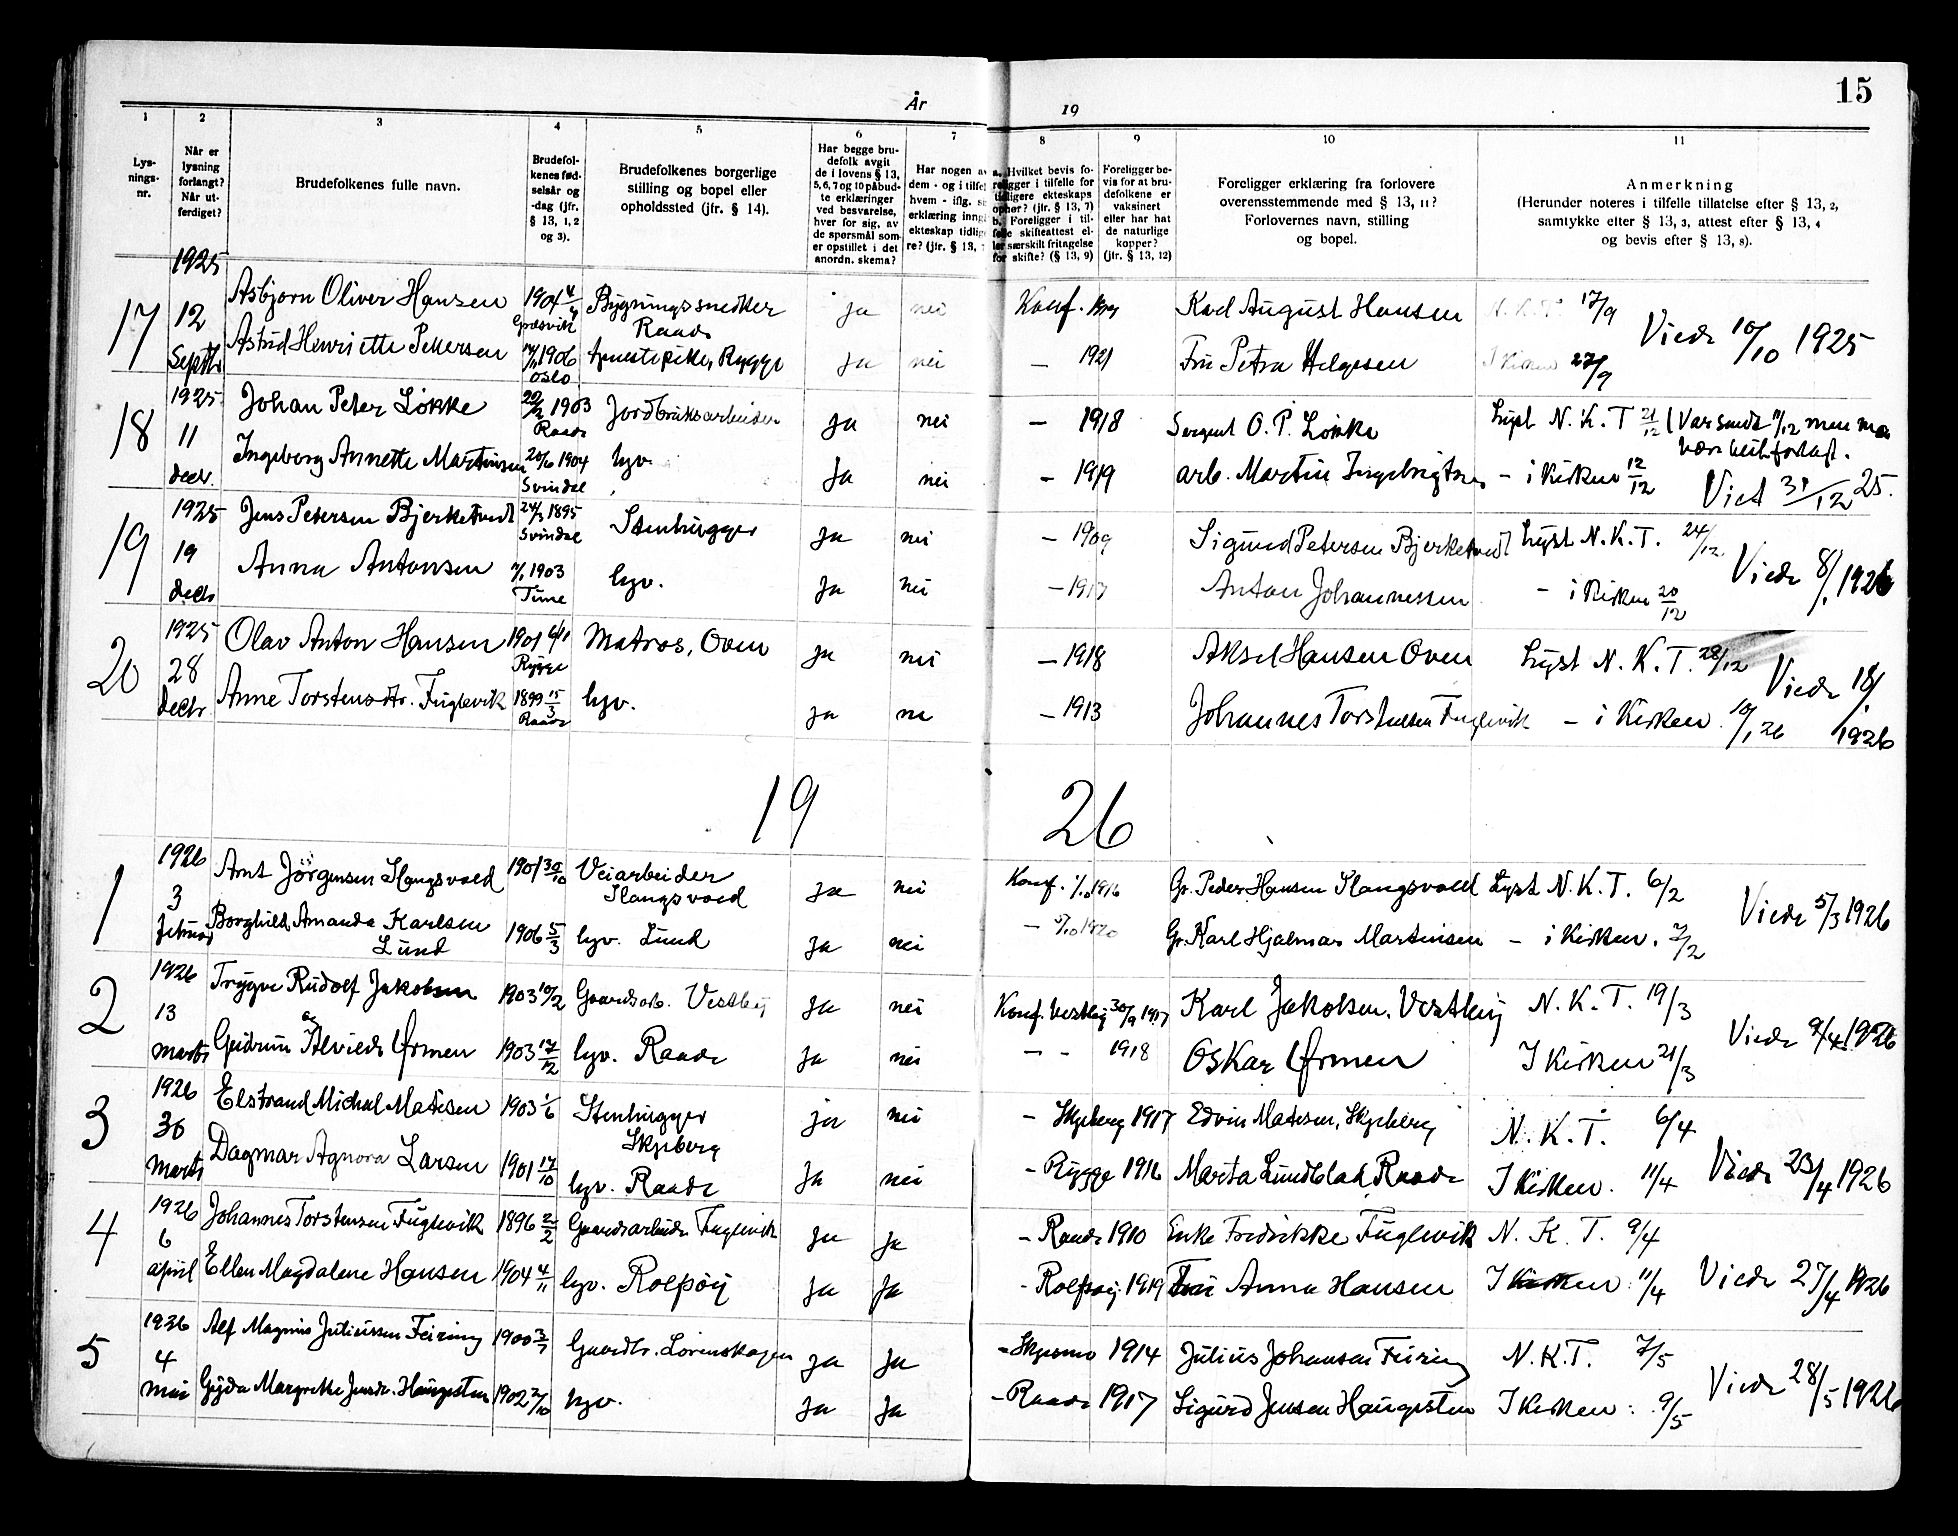 År 19
15
1 2 3 4 5 6 7 8 9 10 11
Lys-
nings-
nr.
Når er
lysning
forlangt?
Når ut-
ferdiget?
Brudefolkenes fulle navn.
Brudefol-
kenes fød-
selsår og
-dag (jfr.
§ 13, 1, 2
og 3).
Brudefolkenes borgerlige
stilling og bopel eller
opholdssted (jfr. § 14).
Har begge bru-
defolk avgit
de i lovens § 13,
5, 6, 7 og 10 påbud-
te erklæringer
ved besvarelse,
hver for sig, av
de spørsmål som
er opstillet i det
anordn. skema?
Har nogen av
dem - og i tilfel
hvem - iflg. s
erklæring inng
ekteskap tidlig
re? (jfr. § 13,
a. Hvilket bevis fo-
religger i tilfelle for
tidligere ekteskaps
ophør? (jfr. § 13, 7)
b. Foreligger i til-
felle skifteattest el-
ler særskilt fritagelse
for skifte? (§ 13, 9)
Foreligger be-
vis for at bru-
defolkene er
vaksinert
eller har hat
de naturlige
kopper?
(jfr. § 13, 12)
Foreligger erklæring fra forlovere
overensstemmende med § 13, 11?
Forlovernes navn, stilling
og bopel.
Anmerkning
(Herunder noteres i tilfelle tillatelse efter § 13, 2,
samtykke efter § 13, 3, attest efter § 13, 4
og bevis efter § 13, 8).
1925
17 12 Asbjørn Oliver Hansen 1904 Bygningssnedker Ja nei Konf. Karl August Hansen N.K.T. 17/9
Græsvik Raade Viede 10/10 1925
Septbr Astrid Henriette Pettersen 1906 Rygge Ja nei — 1921 Fru Petra Helgesen I Kirken 27/9
Oslo
1925
18 11 Johan Peter Løkke 1903 Jordbruksarbeider Ja nei — 1918 O. P. Løkke Lyst N. K. T 21/12 (Var sendt 11/12 men
Raade
decbr. Ingeborg Annette Martinsen 20/6 1904 hv. Ja nei — 1919 arb. Martin Ingebrigtsen — i Kirken 12/12 Viet 31/12 25.
Svindal
1925
19 19 Jens Petersen Bjerketvedt 24/3 1895 Stenhugger Ja nei — 1909 Sigurd Petersen Bjerketvedt Lyst N.K.T. 24/12
Svindal
decbr Anna Antonsen 1903 hv. Ja nei — 1917 Anton Johannessen — i Kirken 20/12 Viede 8/1 1926
Tune
1925
20 28 Olav Anton Hansen 1901 6/11 Matros, Oven Ja nei — 1918 Aksel Hansen Oven Lyst N. K. T. 28/12
Rygge
decbr Anne Torstensdtr. Fuglevik 1899 15/3 hv. Ja nei — 1913 Johannes Torstensen Fuglevik — i Kirken 10/1 26 Viede 18/1 1926
Raade
19 26
1926
1 3 Arnt Jörgensen Slangsvold 1901 30/10 Veiarbeider Ja nei Konf. 1/10 1916 Gr. Peder Hansen Slangsvold Lyst N. K. T. 6/2
Slangsvold
februar Borghild Amanda Karlsen 1906 5/3 hv. Lund Ja nei — 1920 Gr. Karl Hjalmar Martinsen — i Kirken. 7/2 Viede 5/3 1926
Lund
1926
2 13 Trygve Rudolf Jakobsen 1903 10/2 Gaardsarb. Vestby Ja nei Konf. Vestby 30/9 1917 Karl Jakobsen, Vestby N. K. T. 19/3
marts Gudrun Alvilde Ørmen 1903 17/12 hv. Raade Ja nei — - 1918 Oskar Ørmen I Kirken 21/3 Viede 9/4 1926
1926
3 30 Elstrand Michal Matisen 1903 1/6 Stenhugger Ja nei - Skjeberg 1917 Edvin Matisen, Skjeberg N. K. T. 6/4
Skjeberg
marts Dagmar Agnora Larsen 1901 17/10 hv. Raade Ja nei - Rygge 1916 Marta Lundblad Raade I Kirken. 11/4 Viede 23/4 1926
1926
4 6 Johannes Torstensen Fuglevik 1896 2/2 Gaardsarbeider Fuglevik Ja Ja - Raade 1910 Enke Fredrikke Fuglevik N. K. T. 9/4
april Ellen Magdalene Hansen 1904 4/11 hv. Rolfsøy Ja Ja - Rolfsøy 1919 Fru Anna Hansen I Kirken 11/4 Viede 27/4 1926
1926
5 4 Alf Magnus Juliussen Feiring 1900 3/7 Gaardbr. Lørenskogen Ja Ja - Skjesmo 1914 Julius Johansen Feiring N.K.T. 7/5
mai Gyda Margrethe Jensdr. Haugesten 1902 hv. Ja Ja - Raade 1917 Sigurd Jensen Haugesten I Kirken: 9/5 Viede 28/5 1926